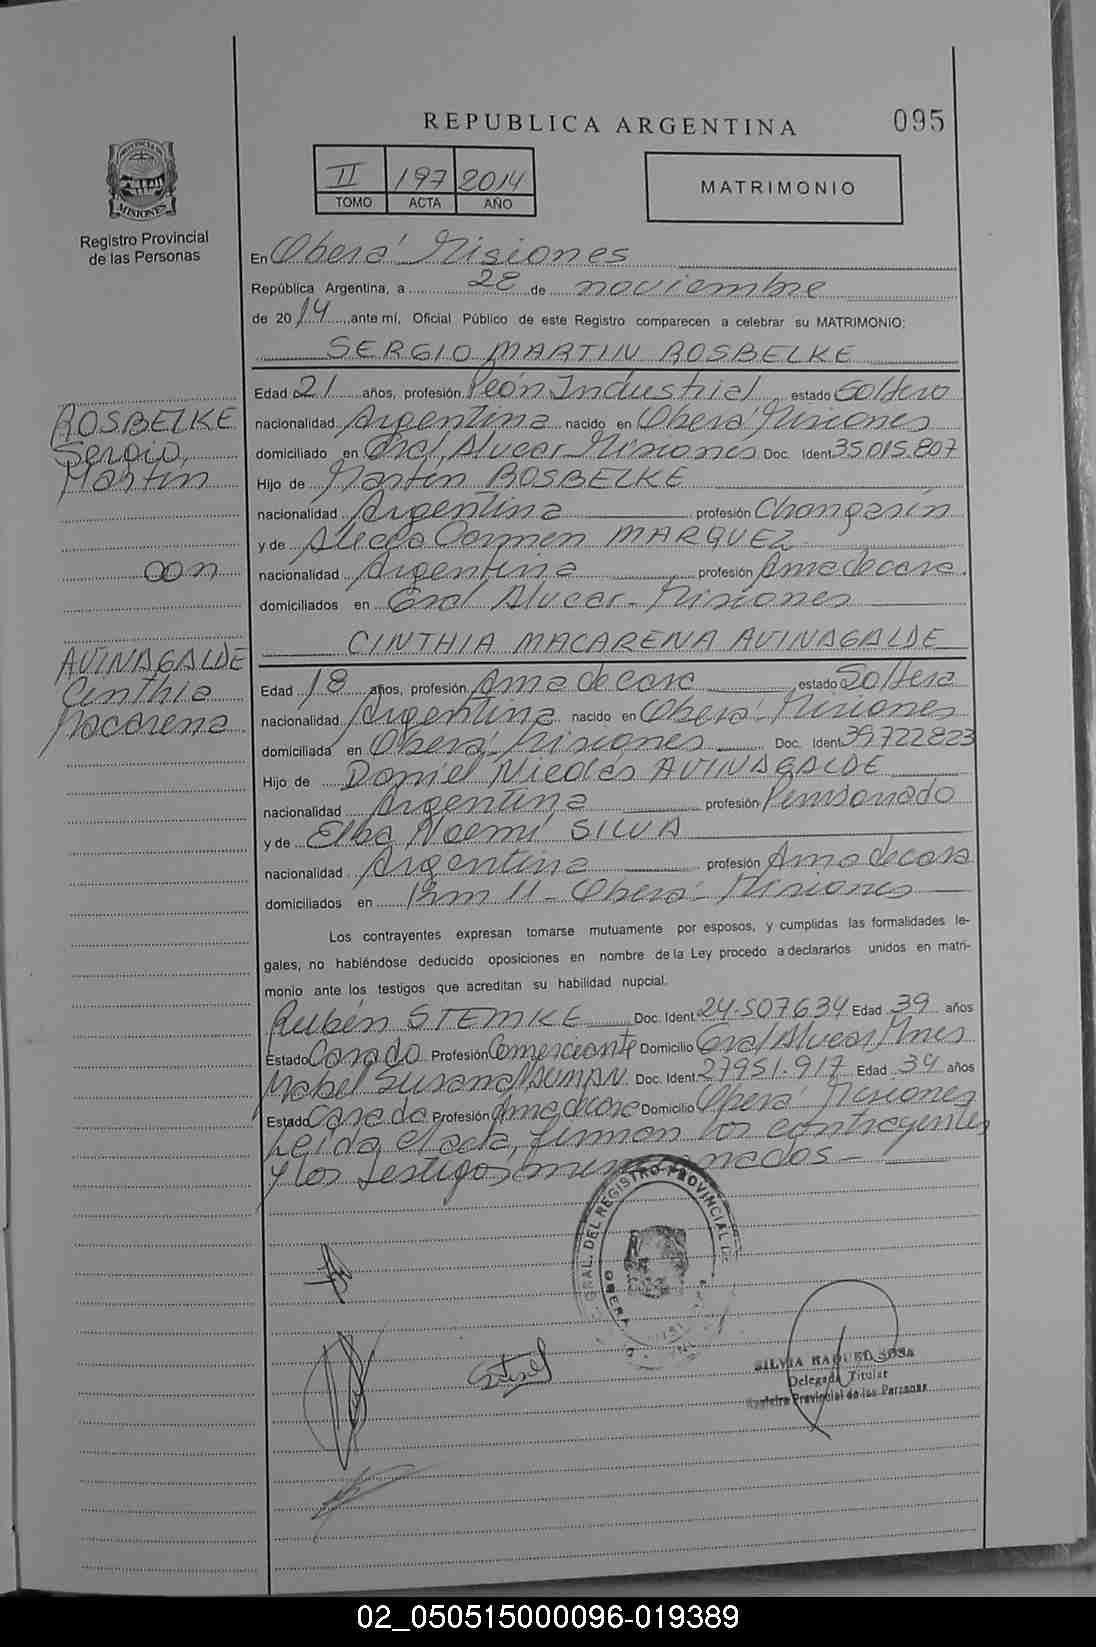 REPUBLICA ARGENTINA
095
II 197 2014
TOMO ACTA AÑO
MATRIMONIO
PROVINCIA DE
MISIONES
Registro Provincial
de las Personas
En Oberá Misiones
República Argentina, a 28 de noviembre
de 2014, ante mí, Oficial Público de este Registro comparecen a celebrar su MATRIMONIO:
SERGIO MARTIN ROSBELKE
Edad 21 años, profesión Peón Industrial estado Soltero
nacionalidad Argentina nacido en Oberá Misiones
domiciliado en Gral. Alvear Misiones Doc. Ident 35.015.807
Hijo de Martin ROSBELKE
nacionalidad Argentina profesión Changarín
y de Alicia Carmen MARQUEZ
nacionalidad Argentina profesión Ama de casa
domiciliados en Gral Alvear - Misiones
ROSBELKE
Sergio
Martín
con
AVINAGALDE
Cinthia
Macarena
CINTHIA MACARENA AVINAGALDE
Edad 18 años, profesión Ama de casa estado Soltera
nacionalidad Argentina nacido en Oberá - Misiones
domiciliada en Oberá - Misiones Doc. Ident 39722823
Hijo de Daniel Nicolás AVINAGALDE
nacionalidad Argentina profesión Pensionado
y de Elba Noemí SILVA
nacionalidad Argentina profesión Ama de casa
domiciliados en Km 11 - Oberá - Misiones
Los contrayentes expresan tomarse mutuamente por esposos, y cumplidas las formalidades le-
gales, no habiéndose deducido oposiciones en nombre de la Ley procedo a declararlos unidos en matri-
monio ante los testigos que acreditan su habilidad nupcial.
Rubén STEMKE Doc. Ident 24.507634 Edad 39 años
Estado Casado Profesión Comerciante Domicilio Gral Alvear Mnes
Mabel Susana NAUMAN Doc. Ident 27951.917 Edad 34 años
Estado Casada Profesión Ama de casa Domicilio Oberá Misiones
Leída el acta, firman los contrayentes
y los testigos mencionados -
GRAL. DEL REGISTRO PROVINCIAL DE
OBERA
SILVIA RAQUEL SOSA
Delegada Titular
Registro Provincial de las Personas
02_050515000096-019389